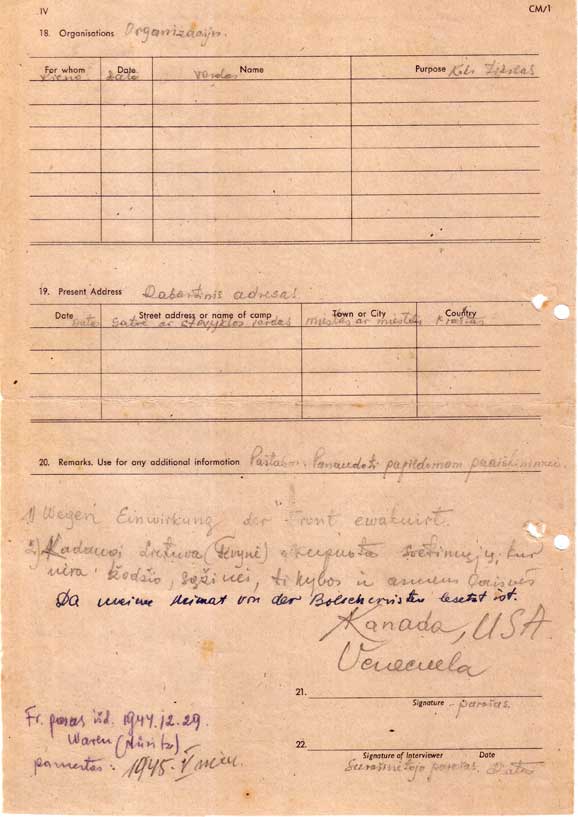 IV CM/1
18. Organisations Organizacijos.
For whom Date Name Purpose
Data Vardas Koks Tikslas
19. Present Address Dabartinis adresas
Date Street address or name of camp Town or City Country
Data Gatvė ar stovyklos vardas miestas ar miestelis Kraštas
20. Remarks. Use for any additional information Pastabos. Panaudoti papildomam paaiškinimui.
1) Wegen Einwirkung der Front ewakuirt.
2) Kadangi Lietuva (tėvynė) okupuota svetimųjų, kur
nėra žodžio, sąžinės, tikybos ir asmens laisvės
Da meine Heimat von der Bolschewisten besetzt ist.
Kanada, USA.
Venecuela
21.
Signature - parašas.
Fr. pasas išd. 1944.12.29.
Waren (Müritz)
pamestas: 1945. V mėn.
22.
Signature of Interviewer Date
parašas. Data